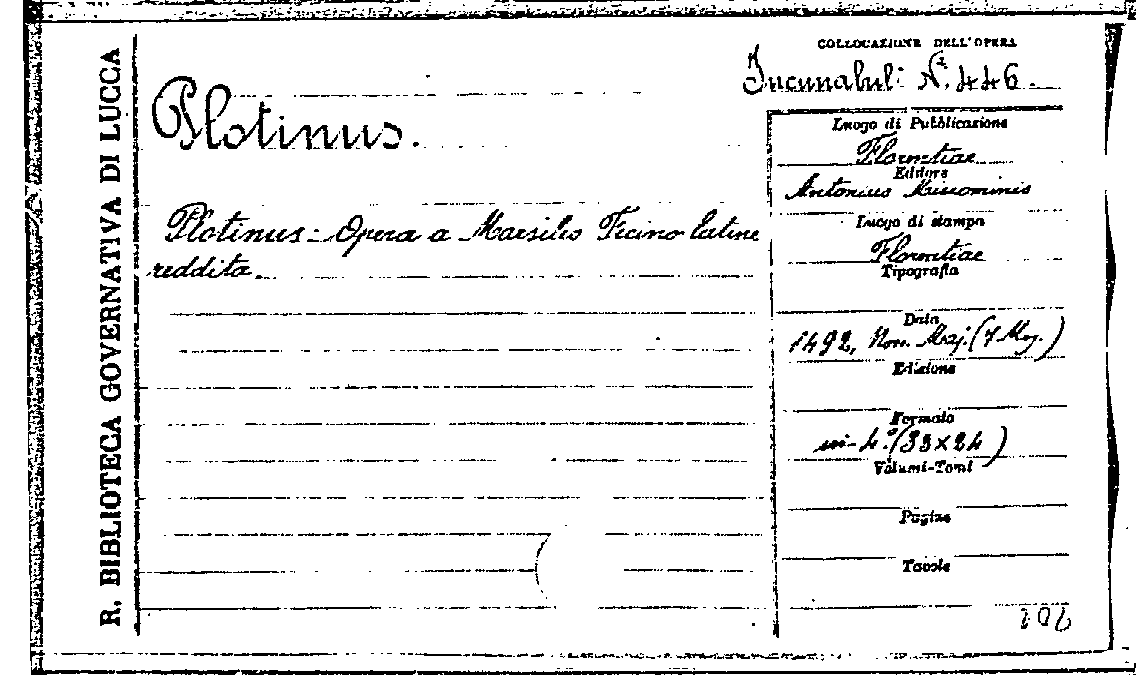 R. BIBLIOTECA GOVERNATIVA DI LUCCA
COLLOCAZIONE DELL'OPERA
Incunabuli N. 446.
Plotinus.
Plotinus - Opera a Marsilio Ficino latine
reddita.
Luogo di Pubblicazione
Florentiae
Editore
Antonius Miscominis
Luogo di stampa
Florentiae
Tipografia
Data
1492, Non. Maj. (7 Mag.)
Edizione
Formato
in-4.° (33×24)
Volumi-Tomi
Pagine
Tavole